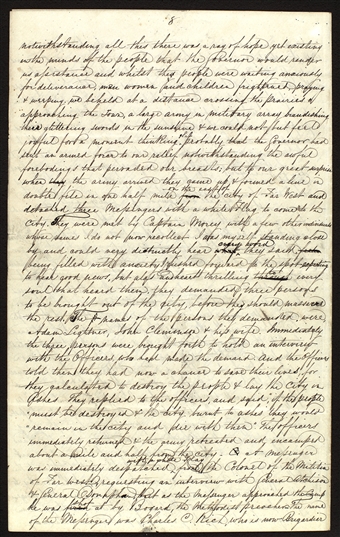 8
notwithstanding all this there was a ray of hope yet existing
in the minds of the people that the Governor would render
us assistance and whilst this people were waiting anxiously
for deliverance, men women and children frightened, praying
& weeping, we beheld at a distance crossing the prairies &
approaching the town, a large army in military array brandishing
their glittering swords in the sunshine & we could not but feel
joyful for a moment thinking that probably that the Governor had
sent an armed force to our relief notwithstanding the awful
forebodings that pervaded our breasts, but to our great surprise
when the army arrived they came up & formed a line in
double file in one half mile on the south of the city of Far West and
detached three Messengers with a white flag to come to the
City. They were met by Captain Morey with a few other individuals
whose names I do not now recollect I was myself standing close
by and could very distinctly hear every word they said
being filled with I rushed to the spot expecting
to hear good news, but alas and heart thrilling to every
soul that heard them, they demanded three persons
to be brought out of the city before they should massacre
the rest. The names of the persons they demanded were
Adam Lightner, John Cleminson & his wife. Immediately
the three persons were brought forth to hold an interview
with the Officers who had made the demand and the officers
told them they had now a chance to save their lives for
they calculated to destroy the people & lay the City in
Ashes. They replied to the officers, and said, if the people
must be destroyed & the City burnt to ashes they would
remain in the City and die with them. The officers
immediately returned & the army retreated and encamped
about a mile and half from the City. A messenger
was immediately dispatched with white flag from the Colonel of the Militia
of Far West requesting an interview with General Atchison
& General Doniphan, but as the messenger approached the camp
he was fired at by Bogard, the Methodist preacher. The name
of the Messenger was Charles C. Rich, who is now Brigadier